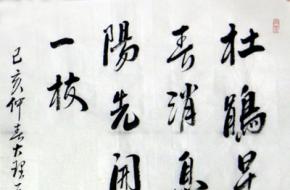 杜鵑早
春消息
陽先開
一枝
己亥仲春大理